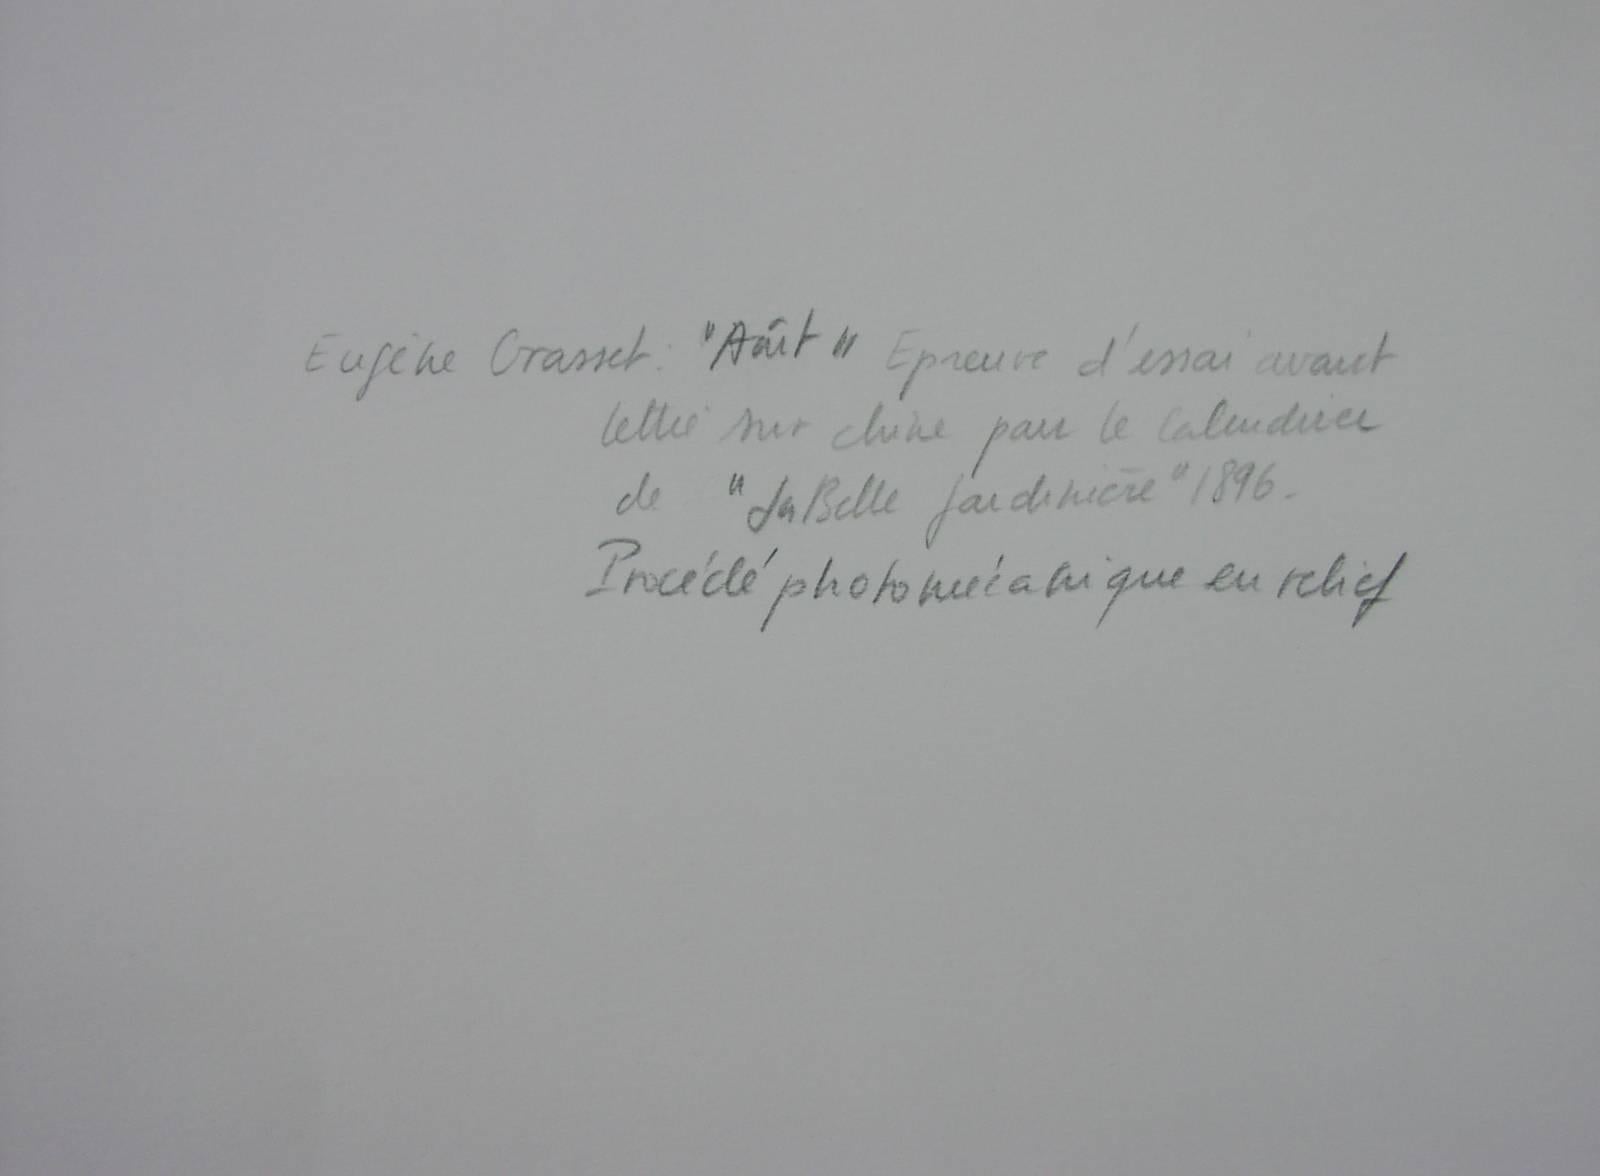 Eugène Grasset: "Août" Epreuve d'essai avant
lettre sur chine pour le Calendrier
de "La Belle Jardinière" 1896-
Procédé photomécanique en relief